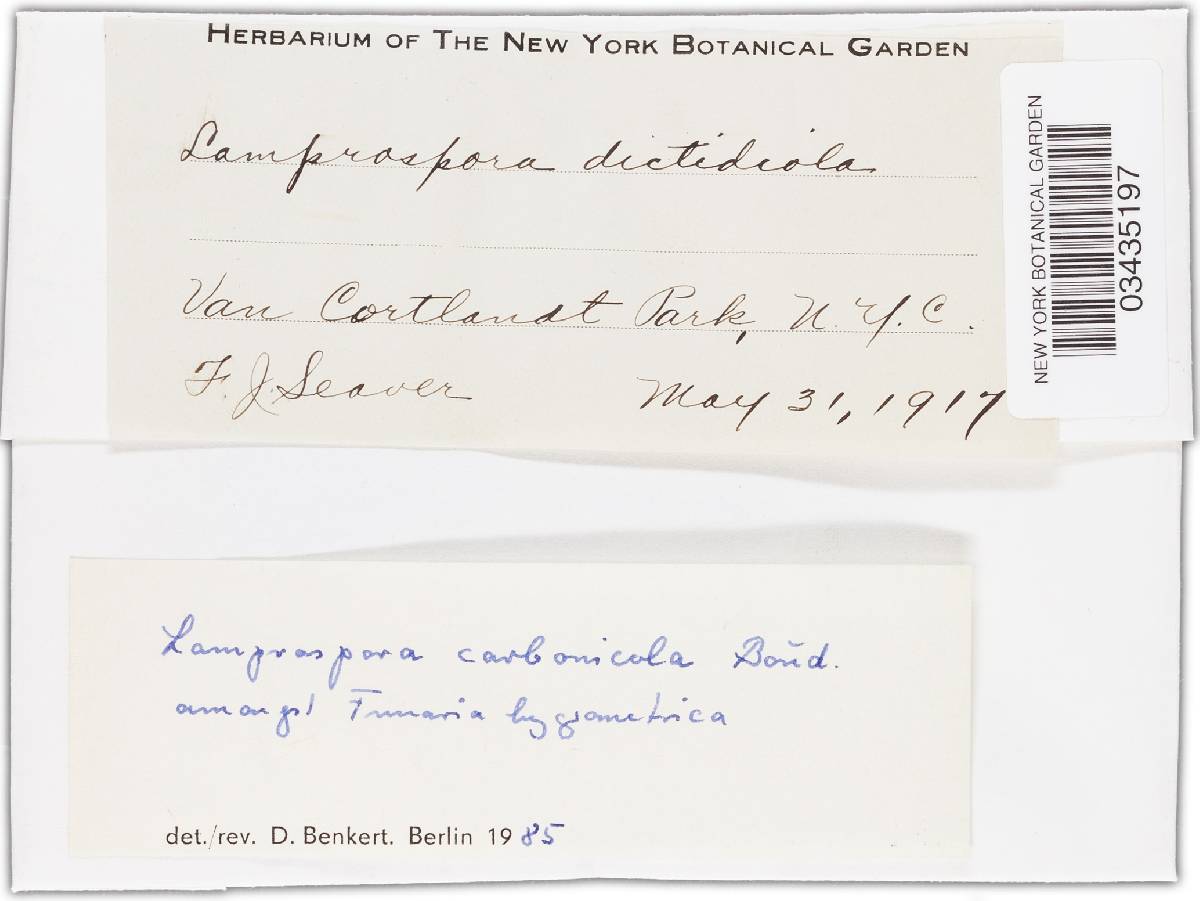 HERBARIUM OF THE NEW YORK BOTANICAL GARDEN
Lamprospora dictidiola
Van Cortlandt Park, N.Y.C.
F. J. Seaver May 31, 1917
NEW YORK BOTANICAL GARDEN
03435197
Lamprospora carbonicola Boud.
amongst Funaria hygrometrica
det./rev. D. Benkert. Berlin 1985